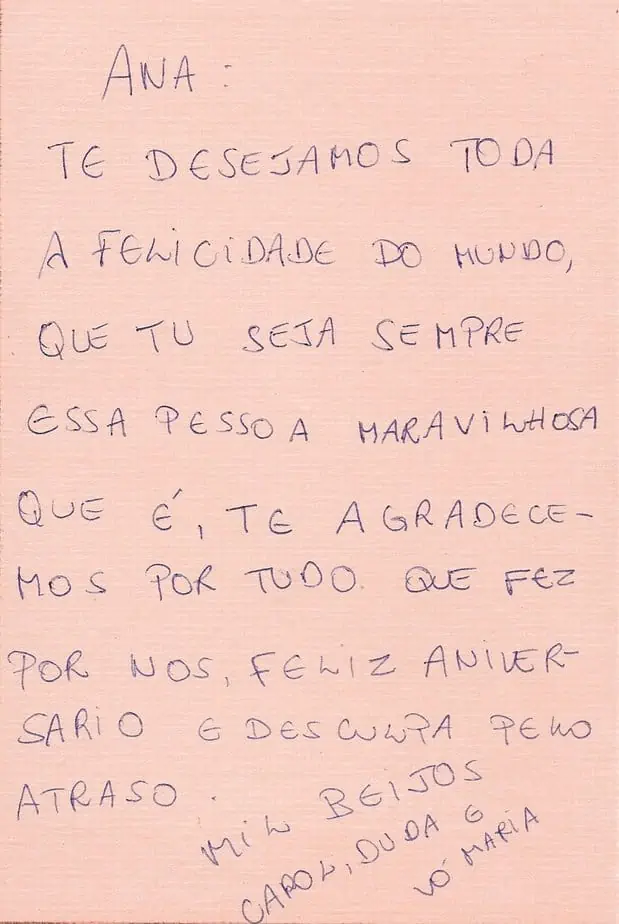 ANA:
TE DESEJAMOS TODA
A FELICIDADE DO MUNDO,
QUE TU SEJA SEMPRE
ESSA PESSOA MARAVILHOSA
QUE É, TE AGRADECE-
MOS POR TUDO. QUE FEZ
POR NOS, FELIZ ANIVER-
SARIO E DESCULPA PELO
ATRASO.
MIL BEIJOS
CAROL, DUDA E
VÓ MARIA